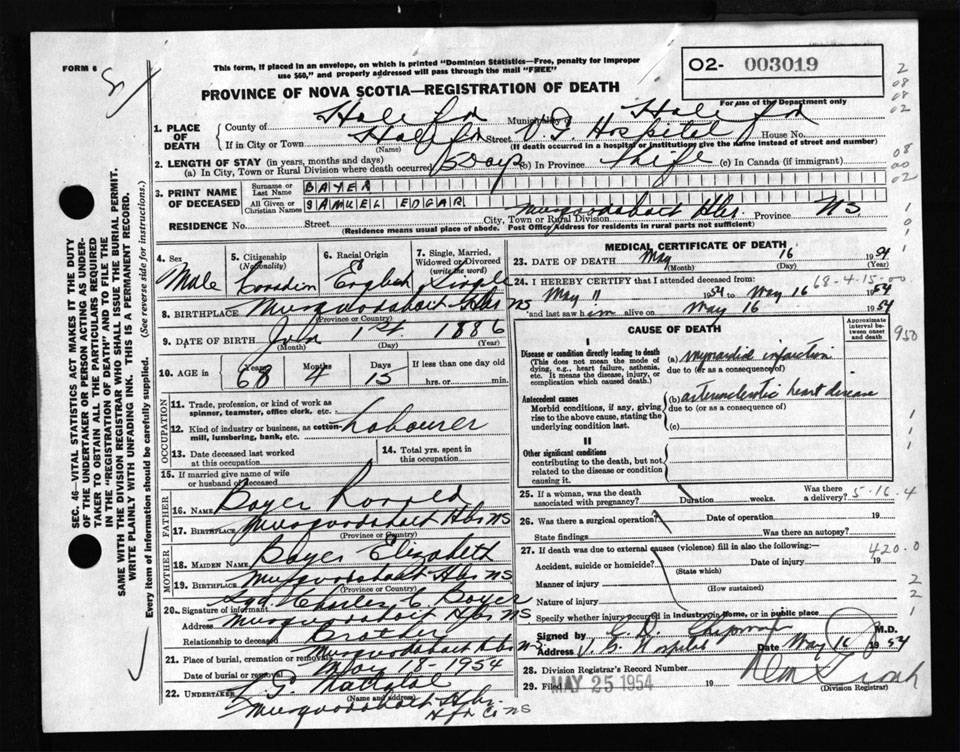 FORM 6
This form, if placed in an envelope, on which is printed "Dominion Statistics—Free, penalty for improper
use $60," and properly addressed will pass through the mail "FREE"
O2- 003019
PROVINCE OF NOVA SCOTIA—REGISTRATION OF DEATH
For use of the Department only
1. PLACE OF DEATH
County of Halifax Municipality of Halifax
If in City or Town Halifax Street V.G. Hospital House No.
(Name) (If death occurred in a hospital or institution, give the name instead of street and number)
2. LENGTH OF STAY (in years, months and days)
(a) In City, Town or Rural Division where death occurred 5 days (b) in Province Life (c) In Canada (if immigrant)
3. PRINT NAME OF DECEASED
Surname or Last Name BAYER
All Given or Christian Names SAMUEL EDGAR
RESIDENCE No. Street City, Town or Rural Division Musquodoboit Hbr. Province NS
(Residence means usual place of abode. Post Office Address for residents in rural parts not sufficient)
4. Sex Male
5. Citizenship (Nationality) Canadian
6. Racial Origin English
7. Single, Married, Widowed or Divorced (write the word) Single
8. BIRTHPLACE Musquodoboit Hbr NS
(Province or Country)
9. DATE OF BIRTH Jan 1st 1886
(Month) (Day) (Year)
10. AGE in Years 68 Months 4 Days 15 If less than one day old
hrs. or min.
OCCUPATION
11. Trade, profession, or kind of work as spinner, teamster, office clerk, etc.
12. Kind of industry or business, as cotton-mill, lumbering, bank, etc. Labourer
13. Date deceased last worked at this occupation
14. Total yrs. spent in this occupation
15. If married give name of wife or husband of deceased
FATHER
16. NAME Bayer Ronald
17. BIRTHPLACE Musquodoboit Hbr NS
(Province or Country)
MOTHER
18. MAIDEN NAME Bayer Elizabeth
19. BIRTHPLACE Musquodoboit Hbr NS
(Province or Country)
20. Signature of informant Sgd Charles C Bayer
Address Musquodoboit Hbr NS
Relationship to deceased Brother
21. Place of burial, cremation or removal Musquodoboit Hbr NS
Date of burial or removal May 18-1954
22. UNDERTAKER
(Name and address)
Musquodoboit Hbr.
Hfx Co NS
MEDICAL CERTIFICATE OF DEATH
23. DATE OF DEATH May 16 1954
(Month) (Day) (Year)
24. I HEREBY CERTIFY that I attended deceased from: 68-4-15-00
May 11 1954 to May 16 1954
and last saw him alive on May 16 1954
CAUSE OF DEATH
Approximate interval between onset and death
I
Disease or condition directly leading to death
(This does not mean the mode of dying, e.g., heart failure, asthenia, etc. It means the disease, injury, or complication which caused death.)
(a) myocardial infarction
due to (or as a consequence of)
Antecedent causes
Morbid conditions, if any, giving rise to the above cause, stating the underlying condition last.
(b) arteriosclerotic heart disease
due to (or as a consequence of)
(c)
II
Other significant conditions
contributing to the death, but not related to the disease or condition causing it.
25. If a woman, was the death associated with pregnancy? Duration weeks. Was there a delivery? 5-16-4
26. Was there a surgical operation? Date of operation 19
State findings Was there an autopsy?
27. If death was due to external causes (violence) fill in also the following:— 420.0
Accident, suicide or homicide? Date of injury 19
(State which)
Manner of injury
(How sustained)
Nature of injury
Specify whether injury occurred in industry, in home, or in public place
Signed by M.D.
Address V.G. Hospital Date May 16 1954
28. Division Registrar's Record Number
29. Filed MAY 25 1954 19
(Division Registrar)
SEC. 46—VITAL STATISTICS ACT MAKES IT THE DUTY
OF THE UNDERTAKER OR PERSON ACTING AS UNDER-
TAKER TO OBTAIN ALL THE PARTICULARS REQUIRED
IN THE "REGISTRATION OF DEATH" AND TO FILE THE
SAME WITH THE DIVISION REGISTRAR WHO SHALL ISSUE THE BURIAL PERMIT.
WRITE PLAINLY WITH UNFADING INK. THIS IS A PERMANENT RECORD.
Every item of information should be carefully supplied. (See reverse side for instructions.)
2
08
08
02
08
00
02
1
0
1
950
1
1
1
2
2
1